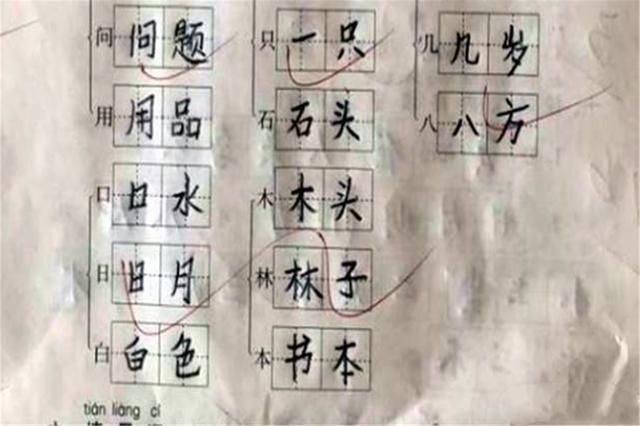 问 问题
用 用品
口 口水
日 日月
白 白色
只 一只
石 石头
木 木头
林 林子
本 书本
几 几岁
八 八方
tián liàng cí